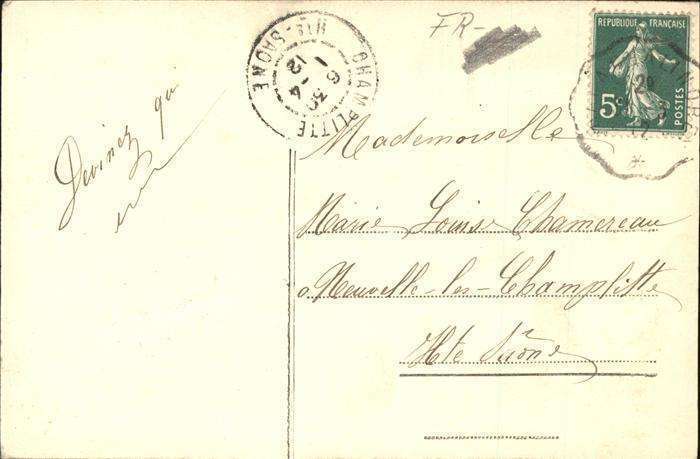 FR-
REPUBLIQUE FRANÇAISE
5c
CHAMPLITTE
HTE-SAÔNE
6 30
1 -4
12
Devinez qu
Mademoiselle
Marie Louise Chamereau
à Neuvelle-les-Champlitte
Hte Saône